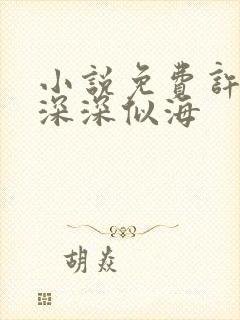 小說免費許
深深似海
胡焱